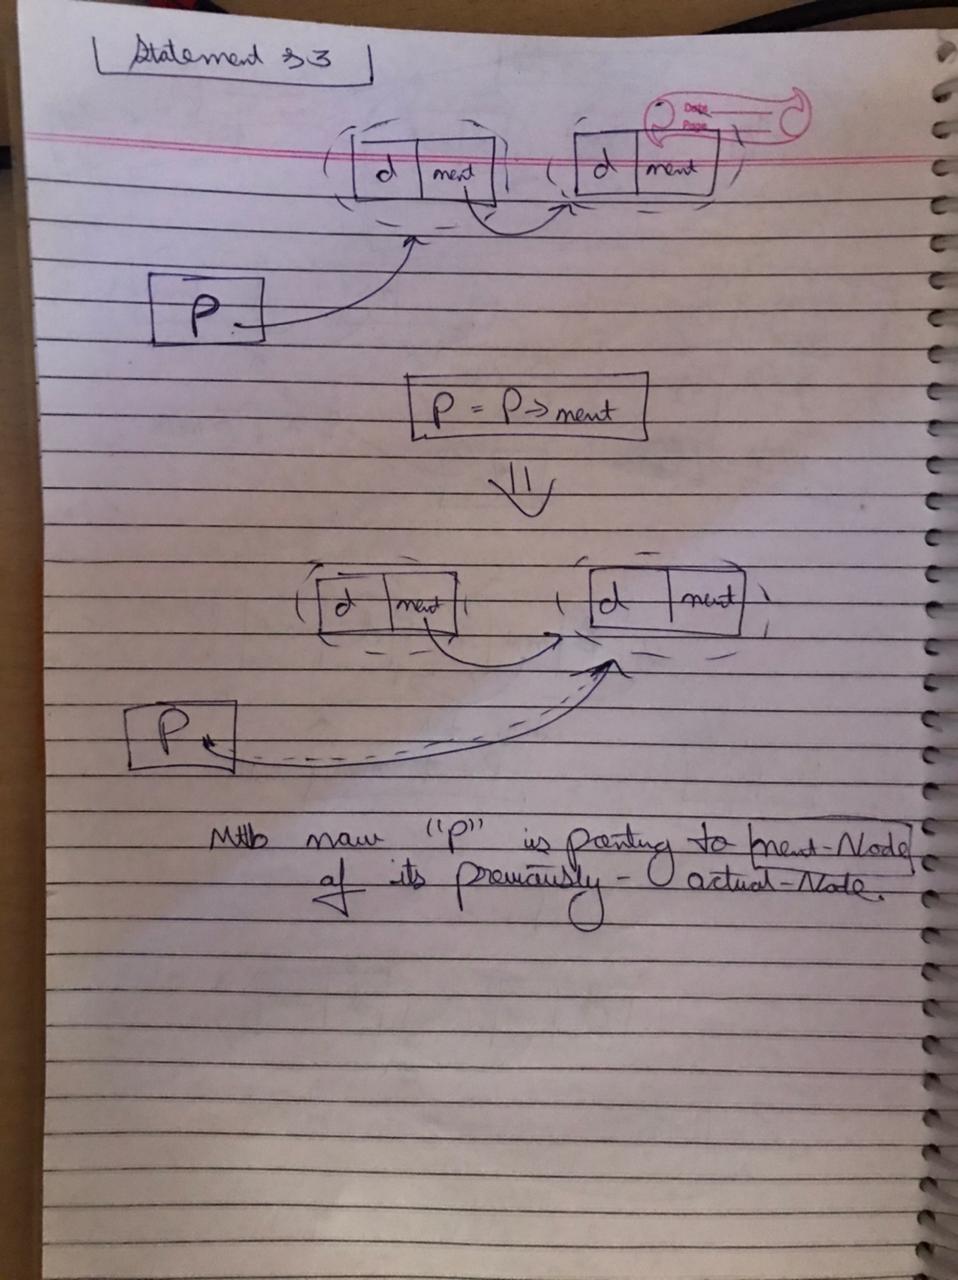 Statement :- 3
Date
Page
d next d next
P
P = P -> next
d next d next
P
Mtlb now "P" is pointing to next-Node
of its previously - actual-Node.